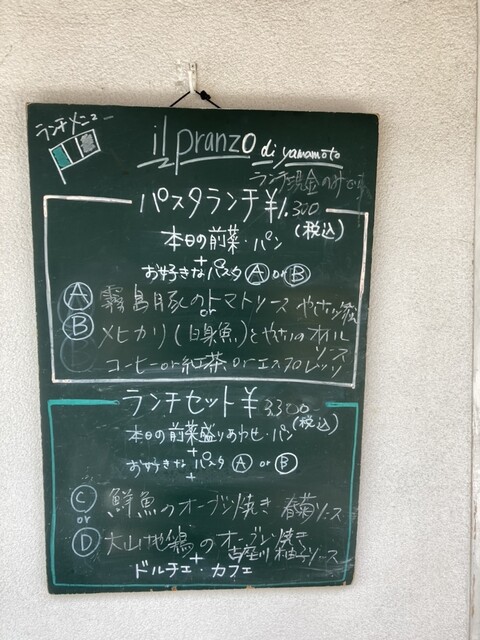 ランチメニュー
il pranzo
di yamamoto
ランチ現金のみです
パスタランチ ¥1.300
(税込)
本日の前菜・パン
+
お好きなパスタ Ⓐ or Ⓑ
Ⓐ 霧島豚のトマトソース やさい
or
Ⓑ メヒカリ(白身魚)とやさいのオイル
ソース
コーヒー or 紅茶 or エスプレッソ
ランチセット ¥3300
(税込)
本日の前菜盛りあわせ・パン
+
お好きなパスタ Ⓐ or Ⓑ
+
Ⓒ 鮮魚のオーブン焼き 春菊ソース
or
Ⓓ 大山地鶏のオーブン焼き
古座川柚子ソース
+
ドルチェ・カフェ